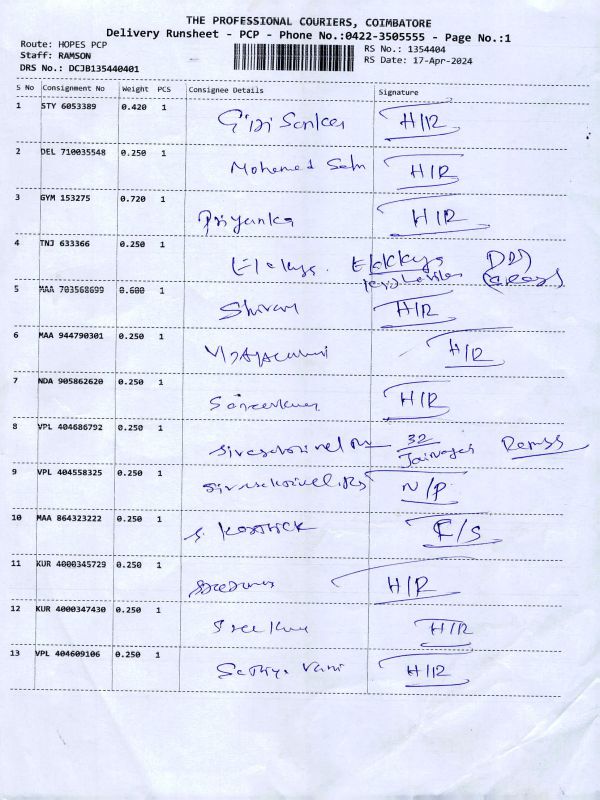 THE PROFESSIONAL COURIERS, COIMBATORE
Delivery Runsheet - PCP - Phone No.:0422-3505555 - Page No.:1
Route: HOPES PCP RS No.: 1354404
Staff: RAMSON RS Date: 17-Apr-2024
DRS No.: DCJB135440401
S No Consignment No Weight PCS Consignee Details Signature
1 STY 6053389 0.420 1 H/R
2 DEL 710035548 0.250 1 Mohamed H/R
3 GYM 153275 0.720 1 Priyanka H/R
4 TNJ 633366 0.250 1
5 MAA 703568699 0.600 1 H/R
6 MAA 944790301 0.250 1 H/R
7 NDA 905862620 0.250 1 H/R
8 VPL 404686792 0.250 1 32
9 VPL 404558325 0.250 1 N/P
10 MAA 864323222 0.250 1
11 KUR 4000345729 0.250 1 H/R
12 KUR 4000347430 0.250 1 H/R
13 VPL 404609106 0.250 1 Vani H/R